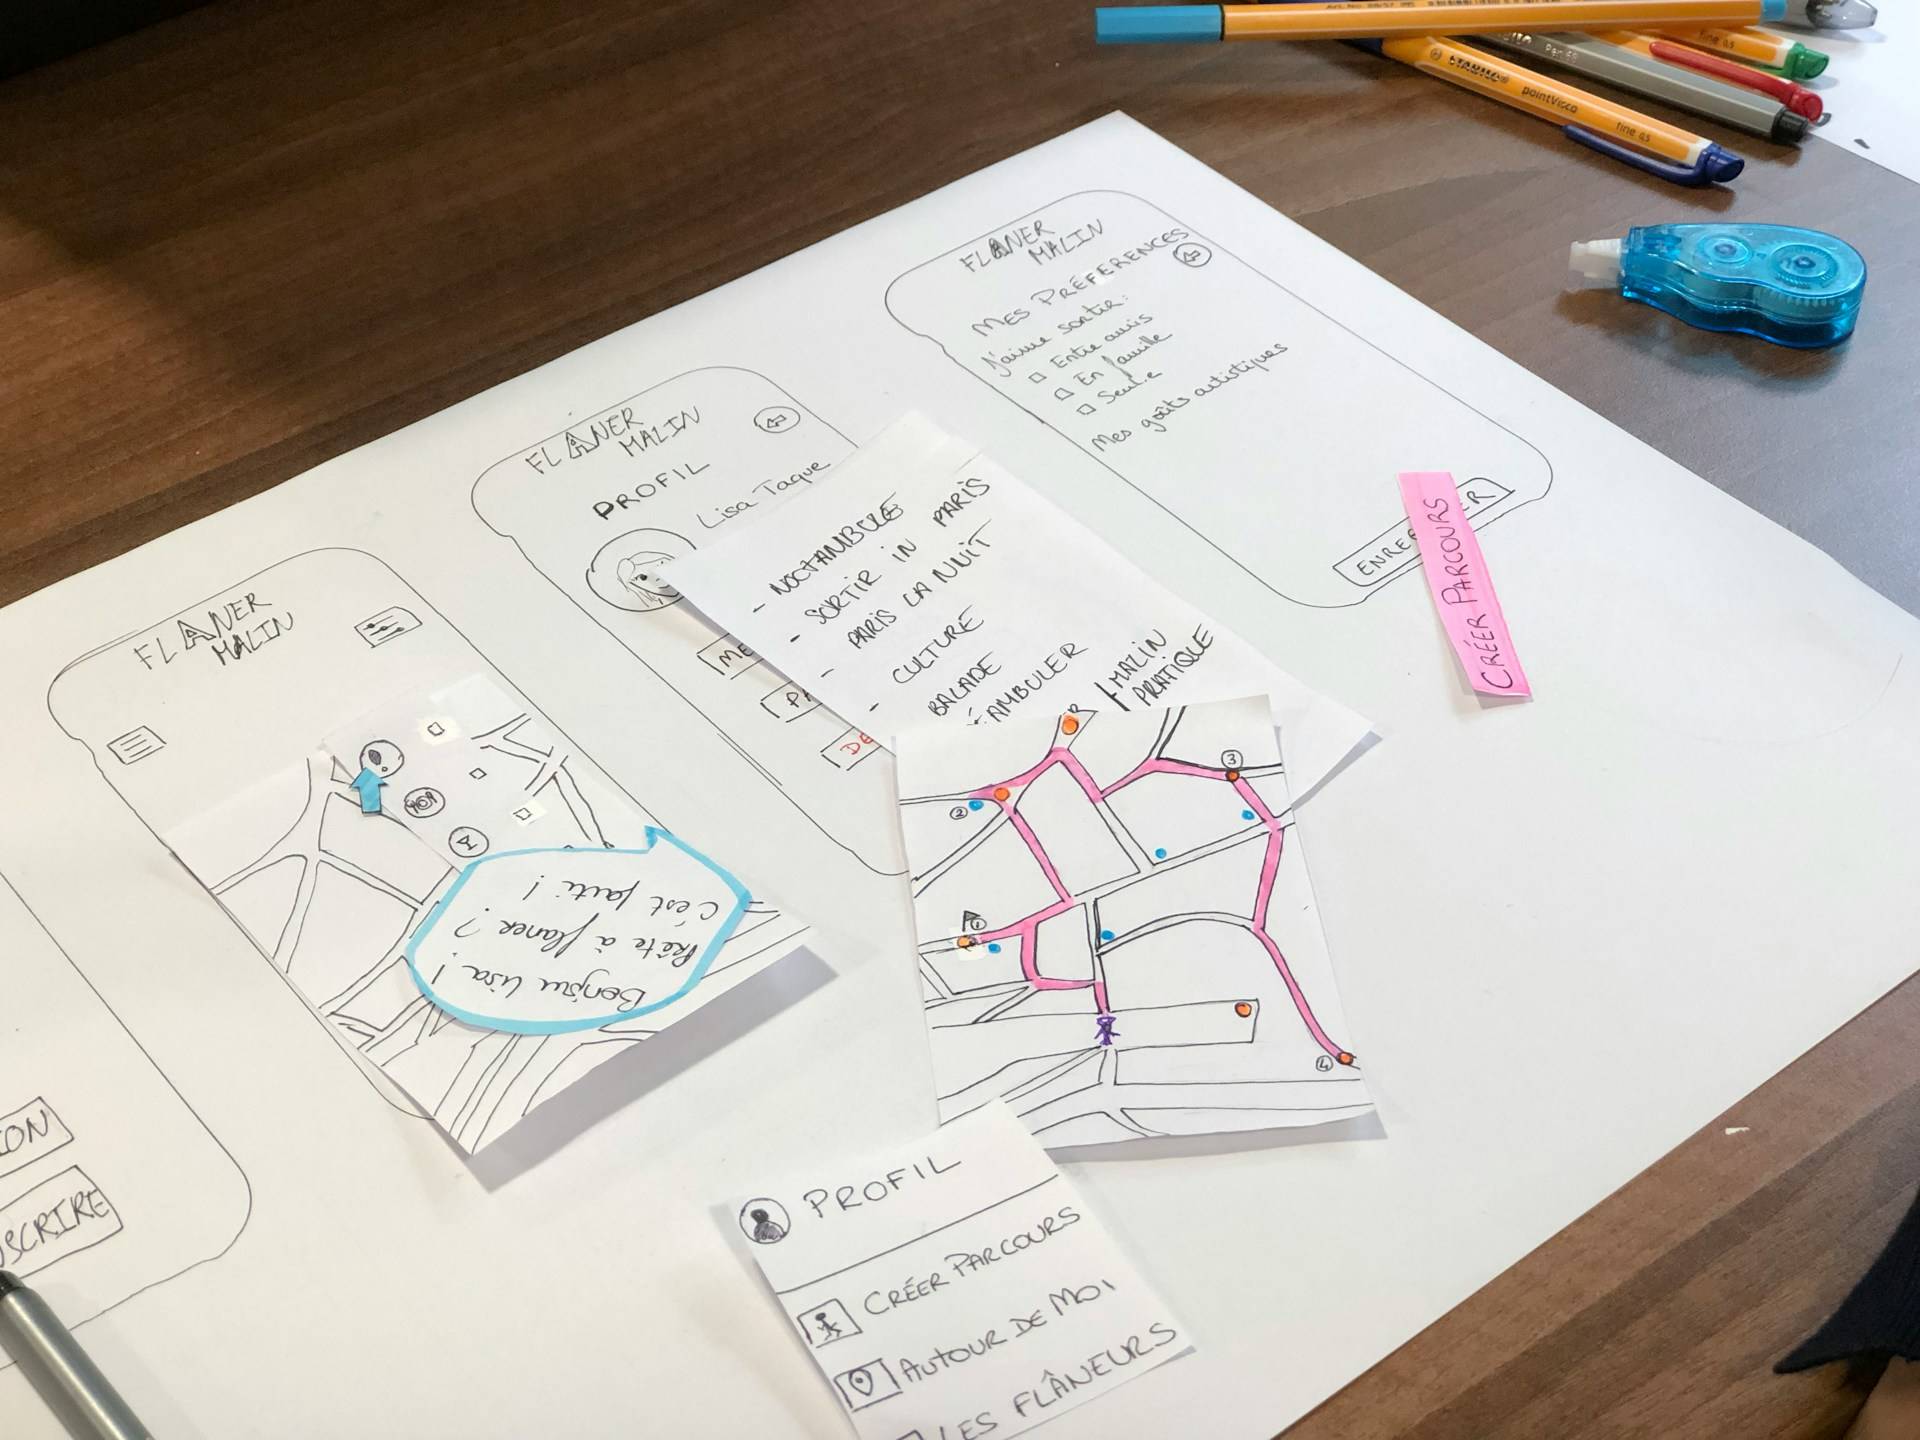 FLANER
MALIN
MES PRÉFERENCES
J'aime sortir:
Entre amis
En famille
Seul.e
Mes goûts artistiques
ENRE
ER
CRÉER PARCOURS
FLANER
MALIN
PROFIL
Lisa Taque
ME
PA
DE
- NOCTAMBULE
- SORTIR IN PARIS
- PARIS LA NUIT
- CULTURE
BALADE
ÉAMBULER
MALIN
PRATIQUE
FLANER
MALIN
Bonjour Lisa!
Prête à flaner?
C'est parti!
1
2
3
4
ION
SCRIRE
PROFIL
CRÉER PARCOURS
AUTOUR DE MOI
LES FLÂNEURS
STABILO
pointVisco
fine 0,5
fine 0,5
Pen 68